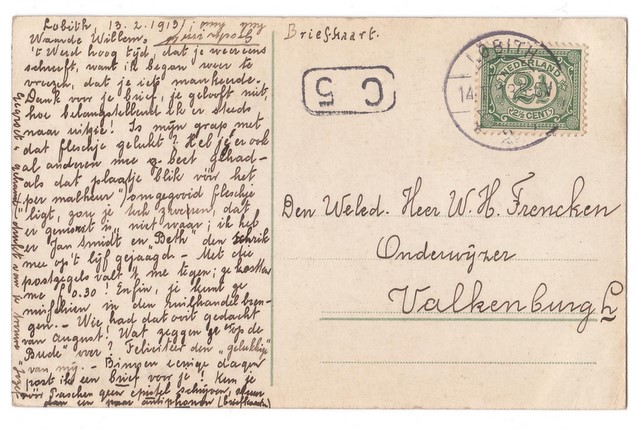 Lobith, 13.2.1913
Waarde Willem,
't Werd hoog tijd, dat je weer eens
schreeft, want ik began weer te
vreezen, dat je iets mankeerde.
Dank voor je brief, je gelooft niet,
hoe belangstellend ik er steeds
naar uitzie! Is mijn grap met
dat fleschje gelukt? Heb je er ook
al anderen mee gehad
als dat plaatje blik vóór het
per malheur omgegooid fleschje
ligt, zou je zweeren, dat
er gemorst is, niet waar; ik heb
er Jan Smidt en "Beth" den schrik
mee op 't lijf gejaagd. - Met die
postzegels valt 't me tegen; ze kosten
me f 0.30! Enfin, je kunt ze
misschien in den ruilhandel bren-
gen. - Wie had dat ooit gedacht
van August! Wat zeggen ze "op de
Bude" over? Feliciteer den "gelukkige"
van mij. - Binnen eenige dagen
post ik een brief voor je! Kun je
vóór Paschen geen epistel schrijven,
dan een paar antiphonen (briefkaarten)
Briefkaart.
C 5
LOBITH
NEDERLAND
2½
2½ CENT
Den Weled. Heer W. H. Frencken
Onderwijzer
Valkenburg L